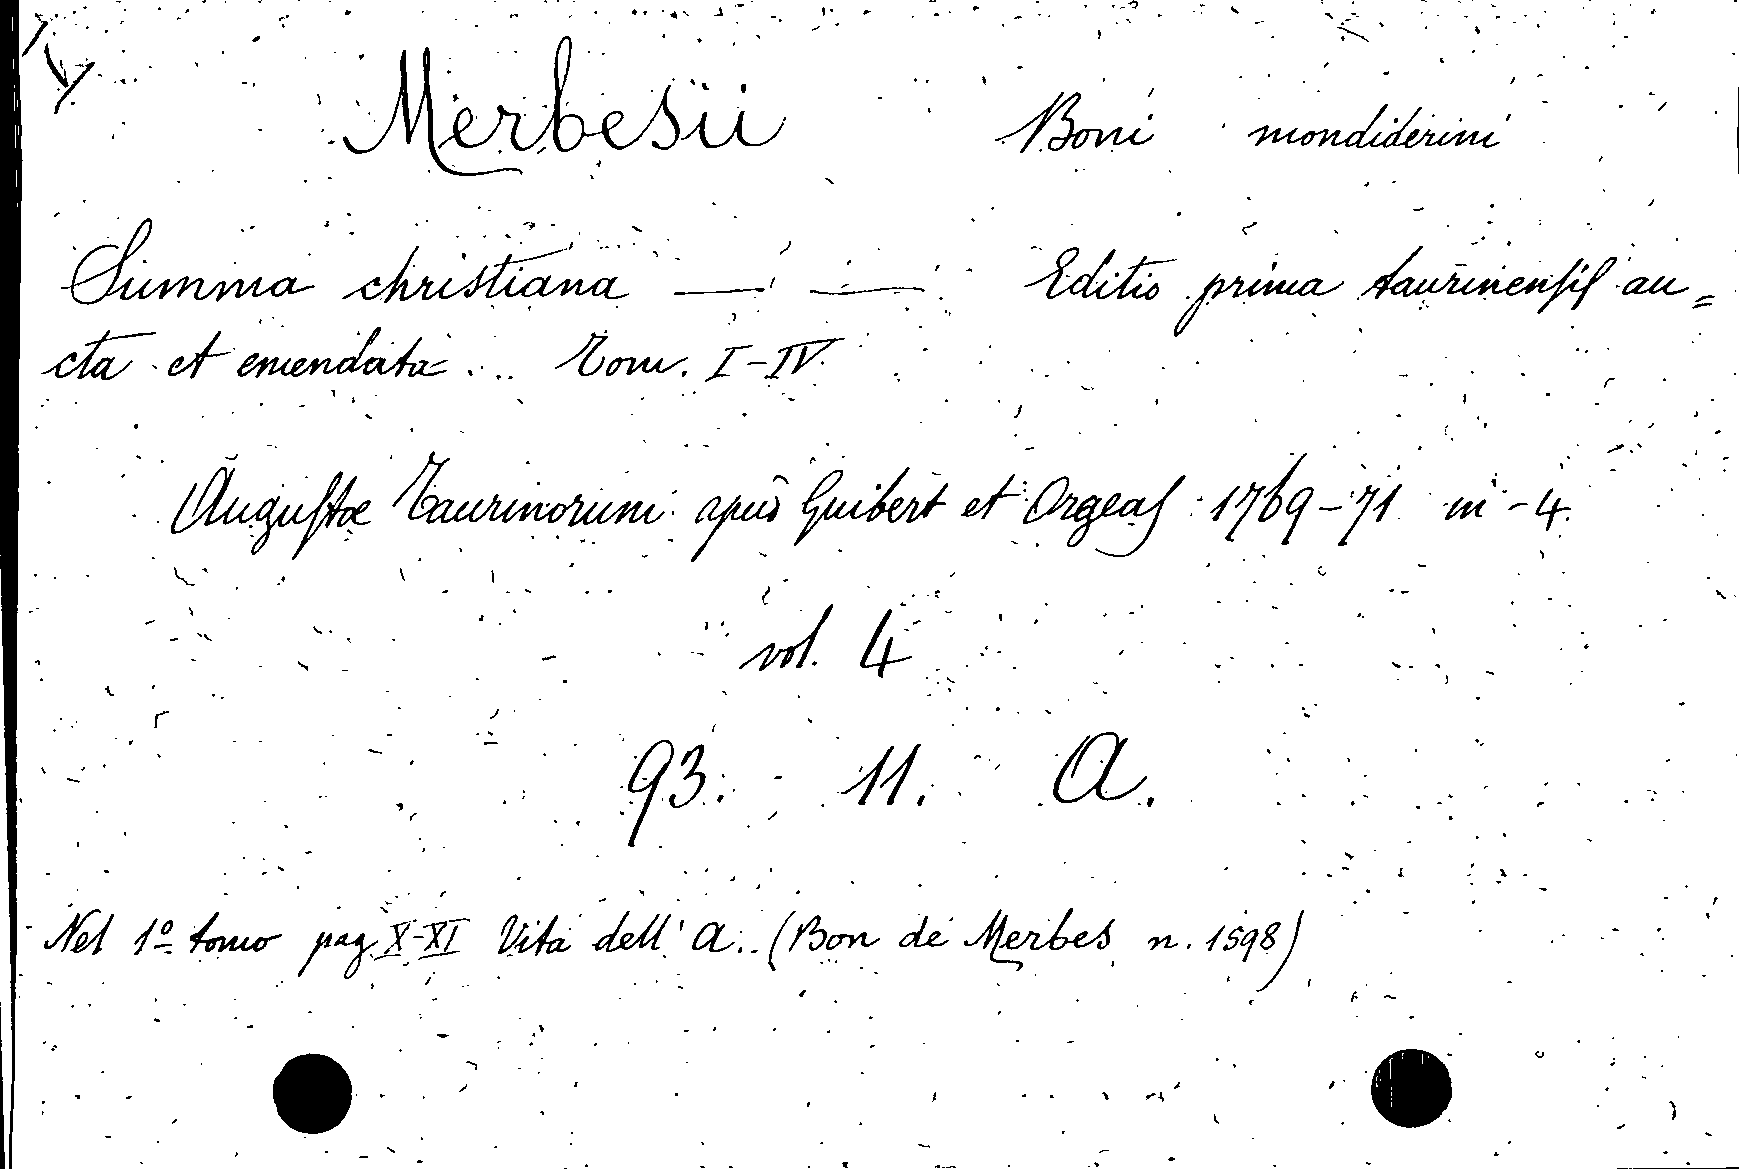 Merbesii Boni mondiderini
Summa christiana — — Editio prima taurinensis au=
cta et emendata ... Tom. I-IV
Augustae Taurinorum apud Guibert et Orgeas 1769-71 in-4
vol. 4
93. 11. A.
Nel 1º tomo pag X-XI Vita dell' A. (Bon de Merbes n. 1598)